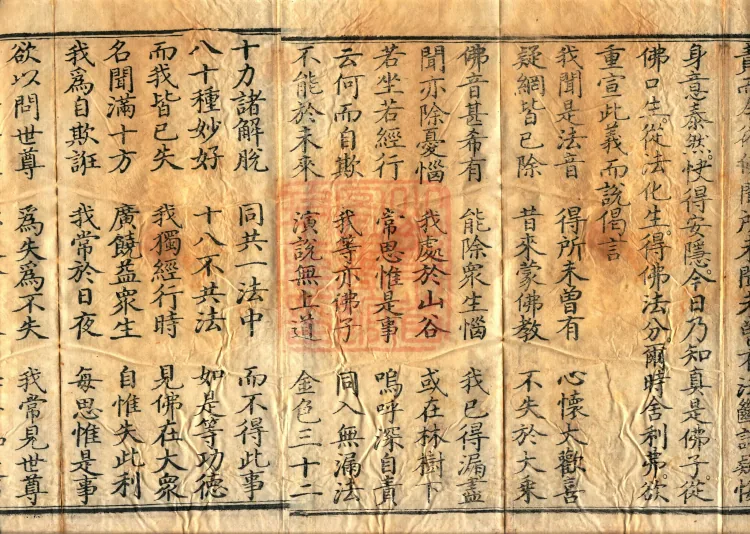 身意泰然。快得安隱。今日乃知真是佛子。從
佛口生。從法化生。得佛法分。爾時舍利弗。欲
重宣此義而說偈言
我聞是法音 得所未曾有 心懷大歡喜
疑網皆已除 昔來蒙佛教 不失於大乘
佛音甚希有 能除衆生惱 我已得漏盡
聞亦除憂惱 我處於山谷 或在林樹下
若坐若經行 常思惟是事 嗚呼深自責
云何而自欺 我等亦佛子 同入無漏法
不能於未來 演說無上道 金色三十二
十力諸解脫 同共一法中 而不得此事
八十種妙好 十八不共法 如是等功德
而我皆已失 我獨經行時 見佛在大衆
名聞滿十方 廣饒益衆生 自惟失此利
我爲自欺誑 我常於日夜 每思惟是事
欲以問世尊 爲失爲不失 我常見世尊